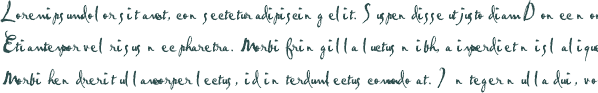 Lorem ipsum dolor sit amet, consectetur adipiscing elit. Suspendisse ut justo diam. Donec non
Etiam tempor vel risus nec pharetra. Morbi fringilla luctus nibh, a imperdiet nisl aliqu
Morbi hendrerit ullamcorper lectus, id interdum lectus commodo at. Integer nulla dui, vo